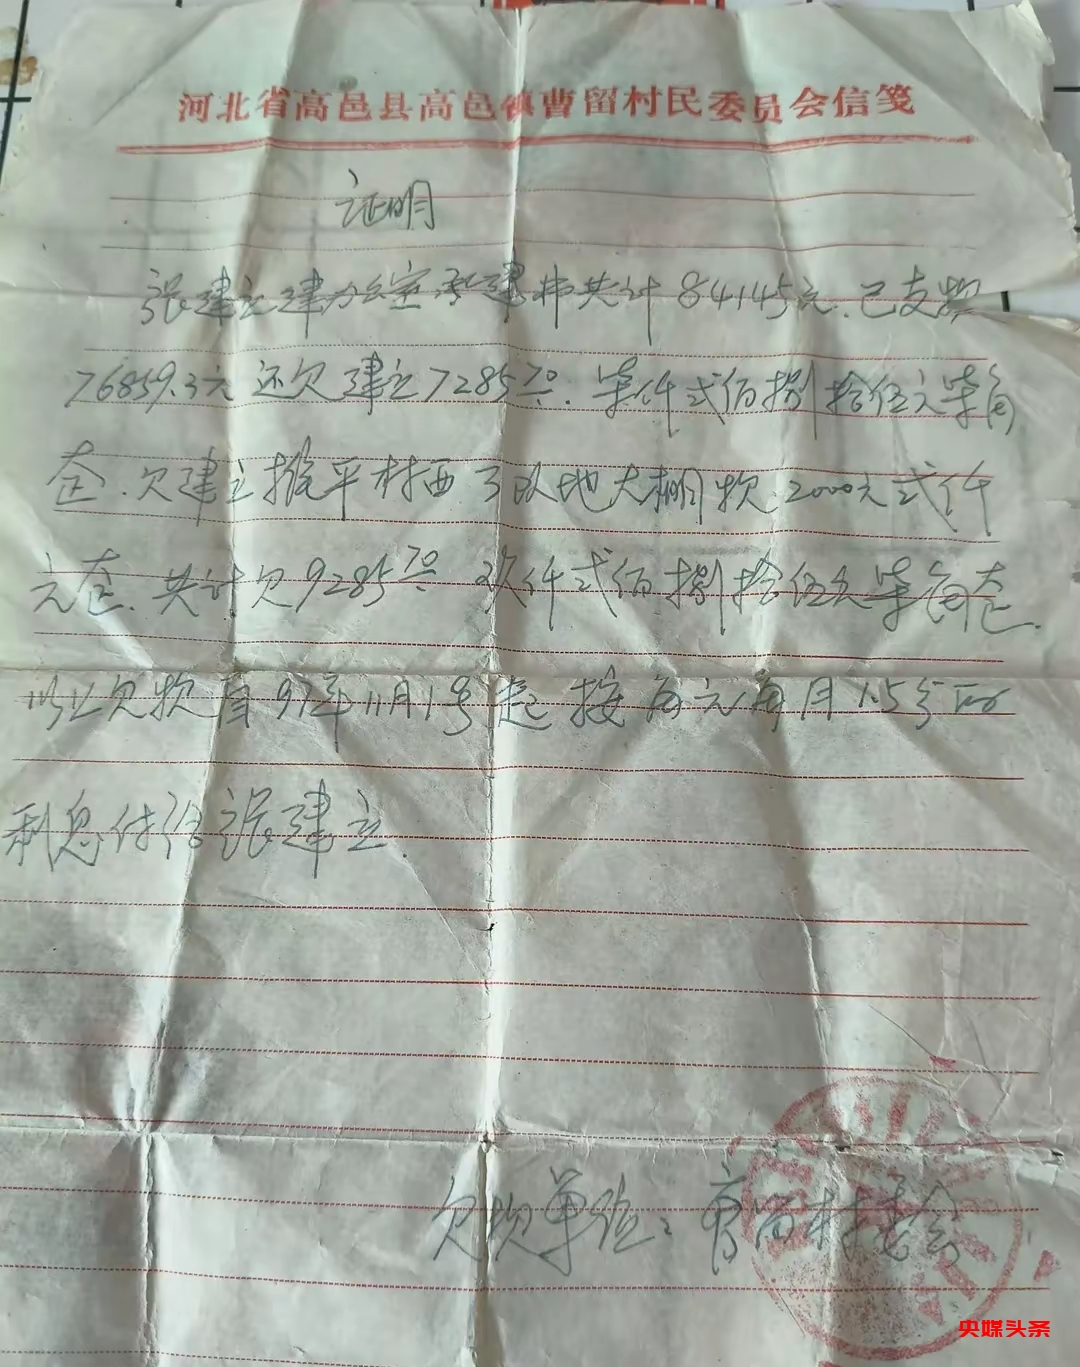 河北省高邑县高邑镇曹留村民委员会信笺
证明
张建立建办公室 共计84145元.已支款
76859.3元还欠建立7285.70.柒仟弍佰捌拾伍元柒角
正.欠建立推平村西3队地大棚款.2000元弍仟
元正.共计欠9285.70 玖仟弍佰捌拾伍元柒角正.
以上欠款自97年11月1号起按每元每月1.5分的
利息付给张建立.
欠款单位:曹留村委会
央媒头条